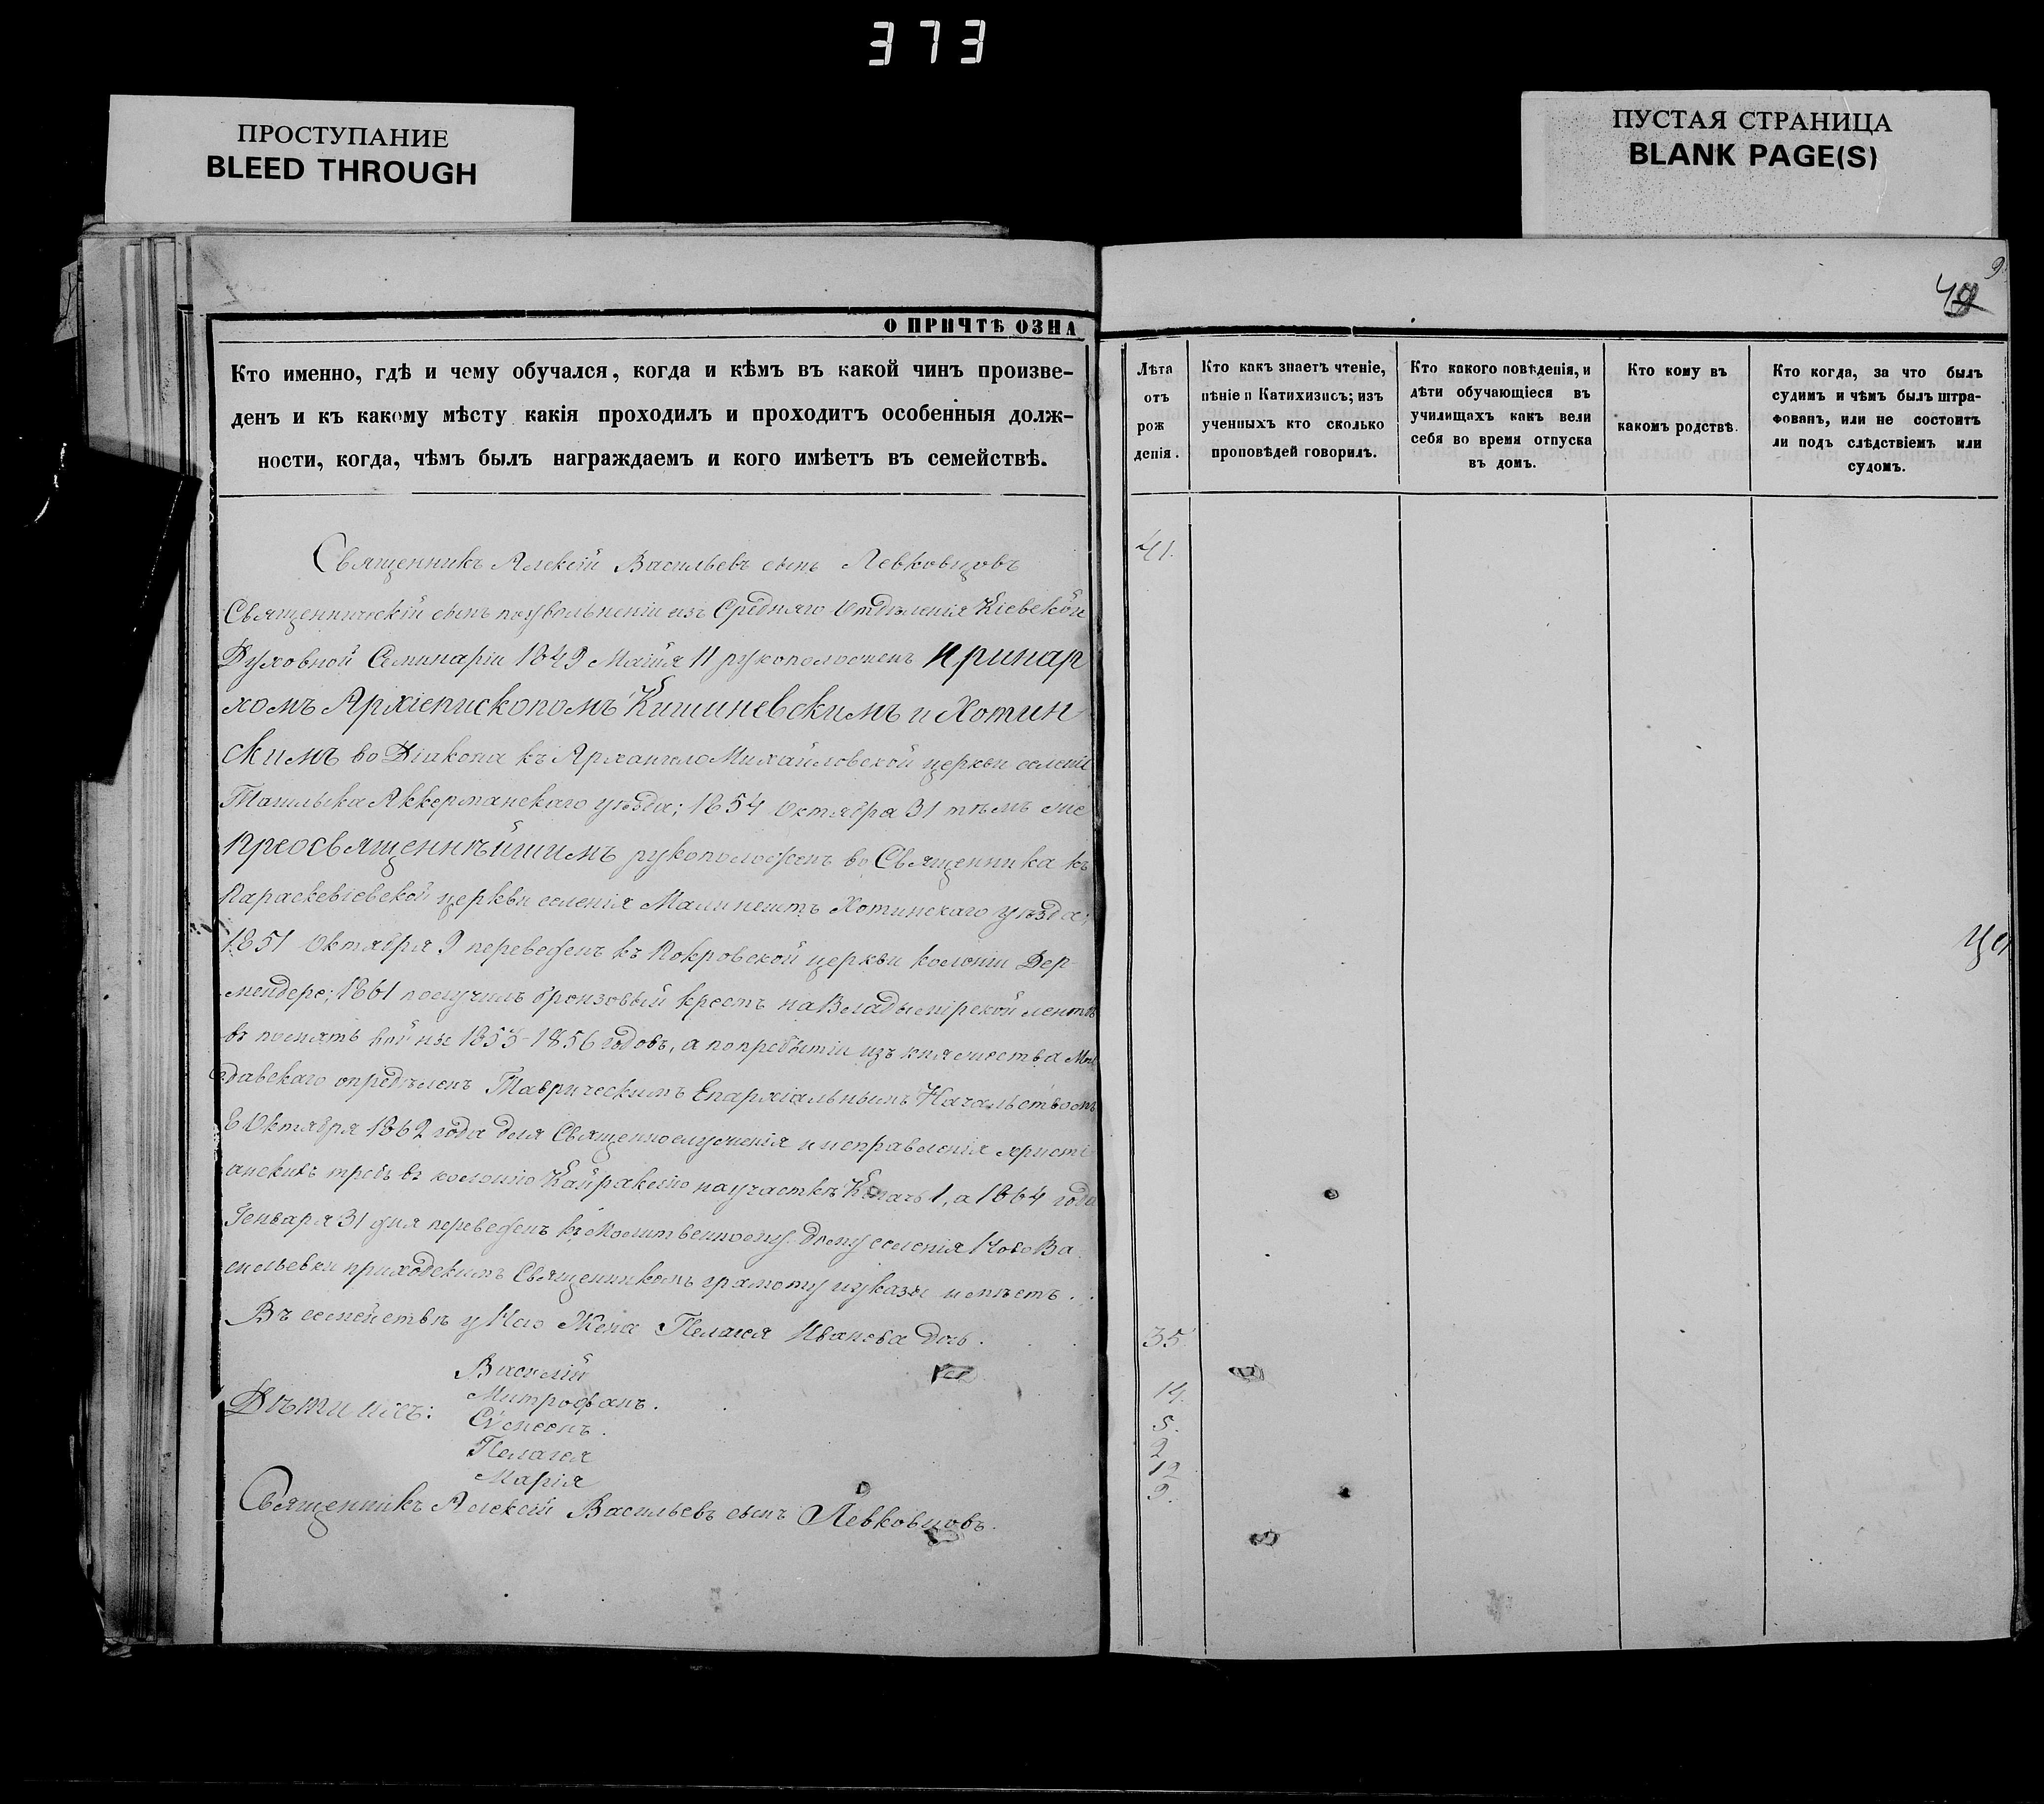 373
ПРОСТУПАНИЕ
BLEED THROUGH
ПУСТАЯ СТРАНИЦА
BLANK PAGE(S)
О ПРИЧТѢ ОЗНА
Кто именно, гдѣ и чему обучался, когда и кѣмъ въ какой чинъ произве-
денъ и къ какому мѣсту какія проходилъ и проходитъ особенныя долж-
ности, когда, чѣмъ былъ награждаемъ и кого имѣетъ въ семействѣ.
Священникъ Алексій Васильевъ сынъ Левковцовъ
Священническій сынъ по увольненіи изъ Средняго Отдѣленія Кіевской
Духовной Семинаріи 1849 Маія 11 рукоположенъ Иринар
хомъ Архіепископомъ Кишиневскимъ и Хотин
скимъ во Діакона къ Архангело Михайловской церкви селенія
Аккерманскаго уѣзда; 1854 Октября 31 тѣмъ же
Преосвященнѣйшимъ рукоположенъ во Священника къ
Параскевіевской церкви селенія Малинештъ Хотинскаго уѣзда;
1851 Октября 9 переведенъ къ Покровской церкви колоніи Дер-
мендере; 1861 получилъ бронзовый крестъ на Владымірской лентѣ
въ память войны 1853-1856 годовъ, а по прибытіи изъ княжества Мол
давскаго опредѣленъ Таврическимъ Епархіальнымъ Начальствомъ
Октября 1862 года для Священнослуженія и исправленія христі
анскихъ требъ въ колонію на участкѣ 1, а 1864 года
Генваря 31 дня переведенъ къ Молитвенному дому селенія Ново Ва
сильевки приходскимъ Священникомъ грамоту и указы имѣетъ.
Въ семействѣ у Него Жена Пелагея Иванова дочь.
Дѣти ихъ:
Василій
Митрофанъ.
Сѵмеонъ.
Пелагея
Марія
Священникъ Алексій Васильевъ сынъ Левковцовъ.
9
Лѣта
отъ
рож
денія.
Кто какъ знаетъ чтеніе,
пѣніе и Катихизисъ; изъ
ученныхъ кто сколько
проповѣдей говорилъ.
Кто какого поведенія, и
дѣти обучающіеся въ
училищахъ какъ вели
себя во время отпуска
въ домъ.
Кто кому въ
какомъ родствѣ.
Кто когда, за что былъ
судимъ и чѣмъ былъ штра-
фованъ, или не состоитъ
ли подъ слѣдствіемъ или
судомъ.
41.
35.
14.
5.
2
12
9.